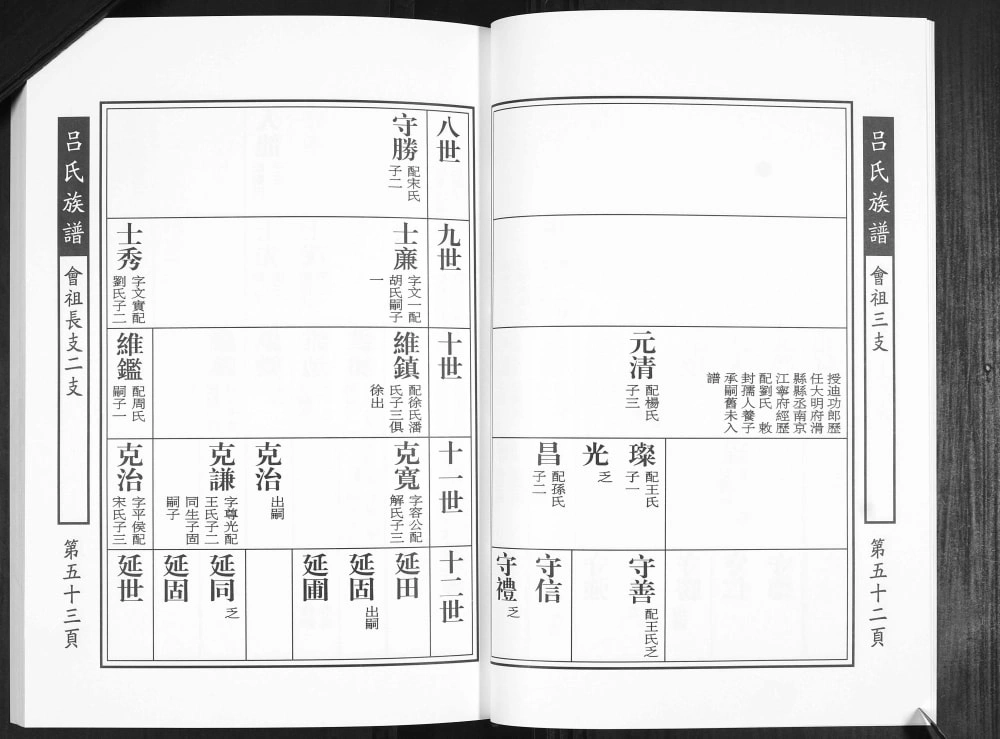 呂氏族譜
會祖三支
第五十二頁
授迪功郎歷
任大明府滑
縣縣丞南京
江寧府經歷
配劉氏 敕
封孺人養子
承嗣舊未入
譜
元清
配楊氏
子三
璨
配王氏
子一
光
乏
昌
配孫氏
子二
守善
配王氏乏
守信
守禮
乏
八世
守勝
配宋氏
子二
九世
士廉
字文一配
胡氏嗣子
一
士秀
字文實配
劉氏子二
十世
維鎮
配徐氏潘
氏子三俱
徐出
維鑑
配周氏
嗣子一
十一世
克寬
字容公配
解氏子三
克治
出嗣
克謙
字尊光配
王氏子二
同生子固
嗣子
克治
字平侯配
宋氏子三
十二世
延田
延固
出嗣
延圃
延同
乏
延固
延世
呂氏族譜
會祖長支二支
第五十三頁